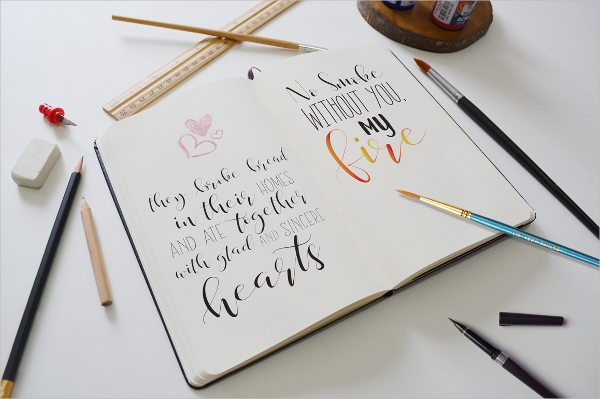 they broke bread
in their HOMES
AND ATE together
with glad AND SINCERE
hearts
No Smoke
WITHOUT YOU,
MY
fire